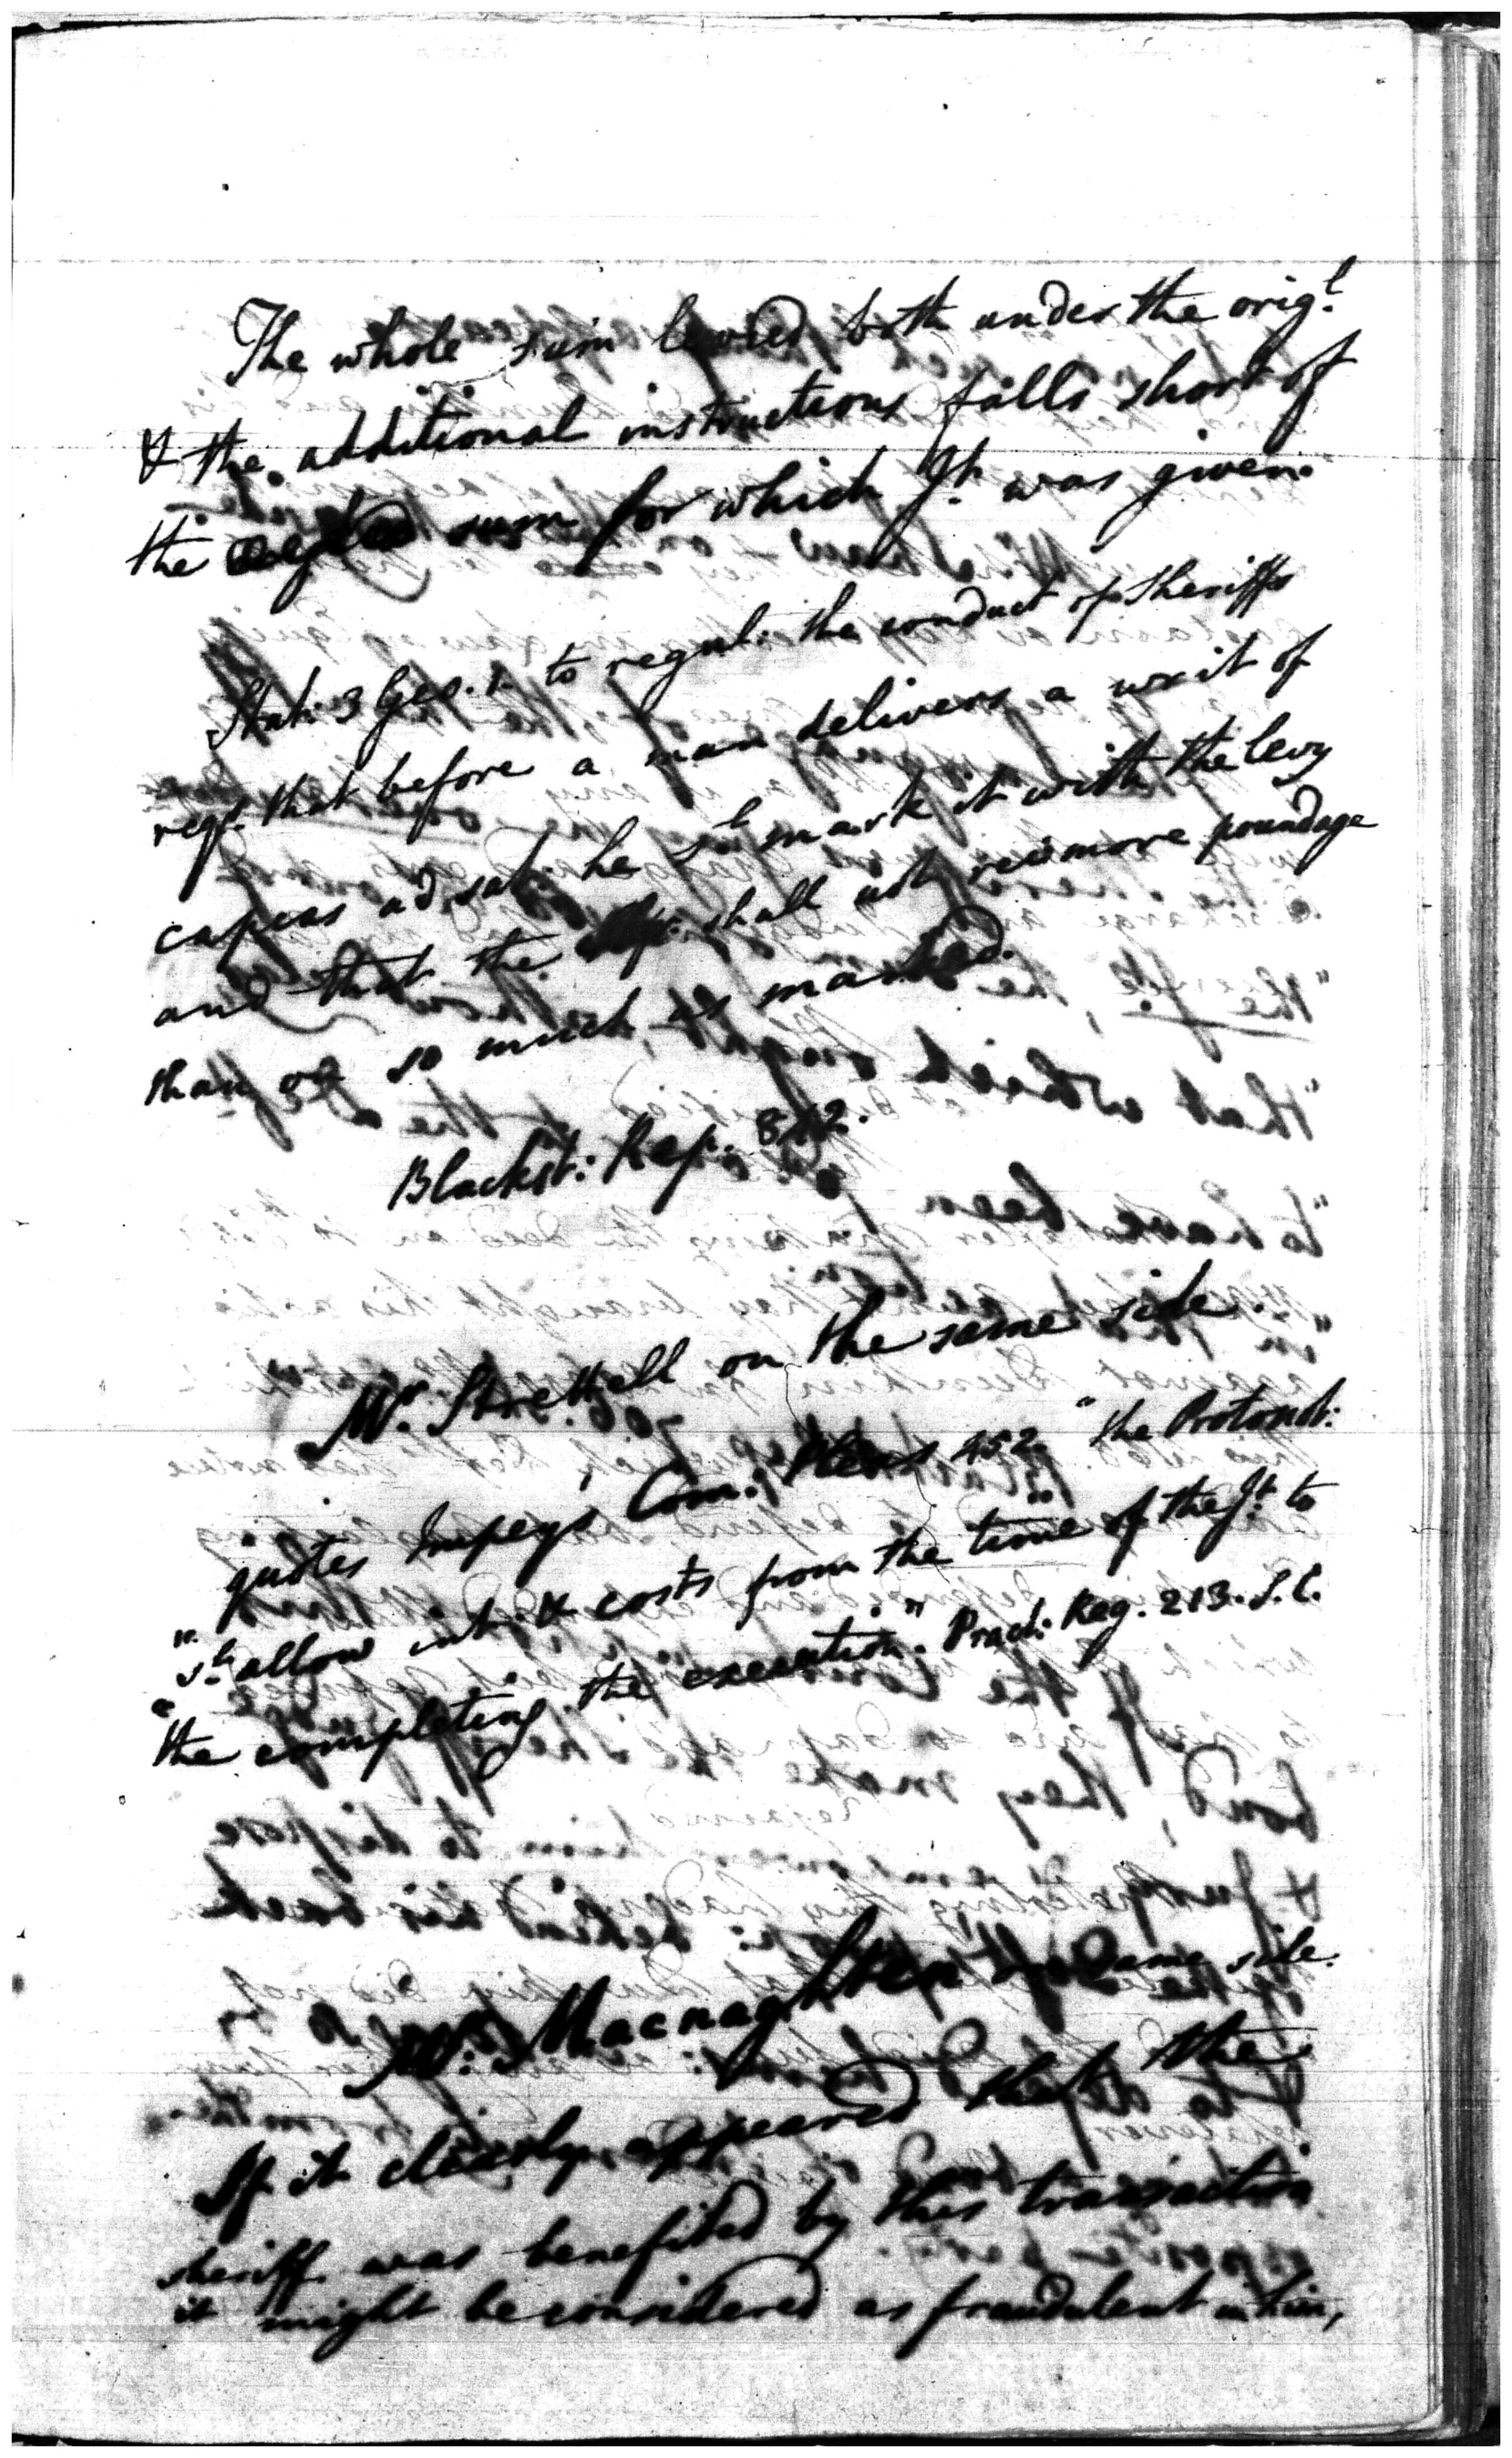 The whole sum levied both under the orig.l
& the additional instructions falls short of
the sum for which Jt. was given.
Stat: 3 Geo. 1. to regul: the conduct of Sheriffs
reqs. that before a man delivers a writ of
capias ad sat: he sd. mark it with the levy
and that the shall not rec: more poundage
than of so much as marked.
Blackst: Rep.
Mr. Strettell on the same side.
quotes Impeys Com: Pleas 452. "the Protonot:
"sd. allow int: & costs from the time of the Jt. to
"the completing the execution." Pract: Reg. 213. S.C.
Mr. Macnaghten same side.
If it clearly appeared that the
sheriff was benefited by this transaction
it might be considered as fraudulent in him,